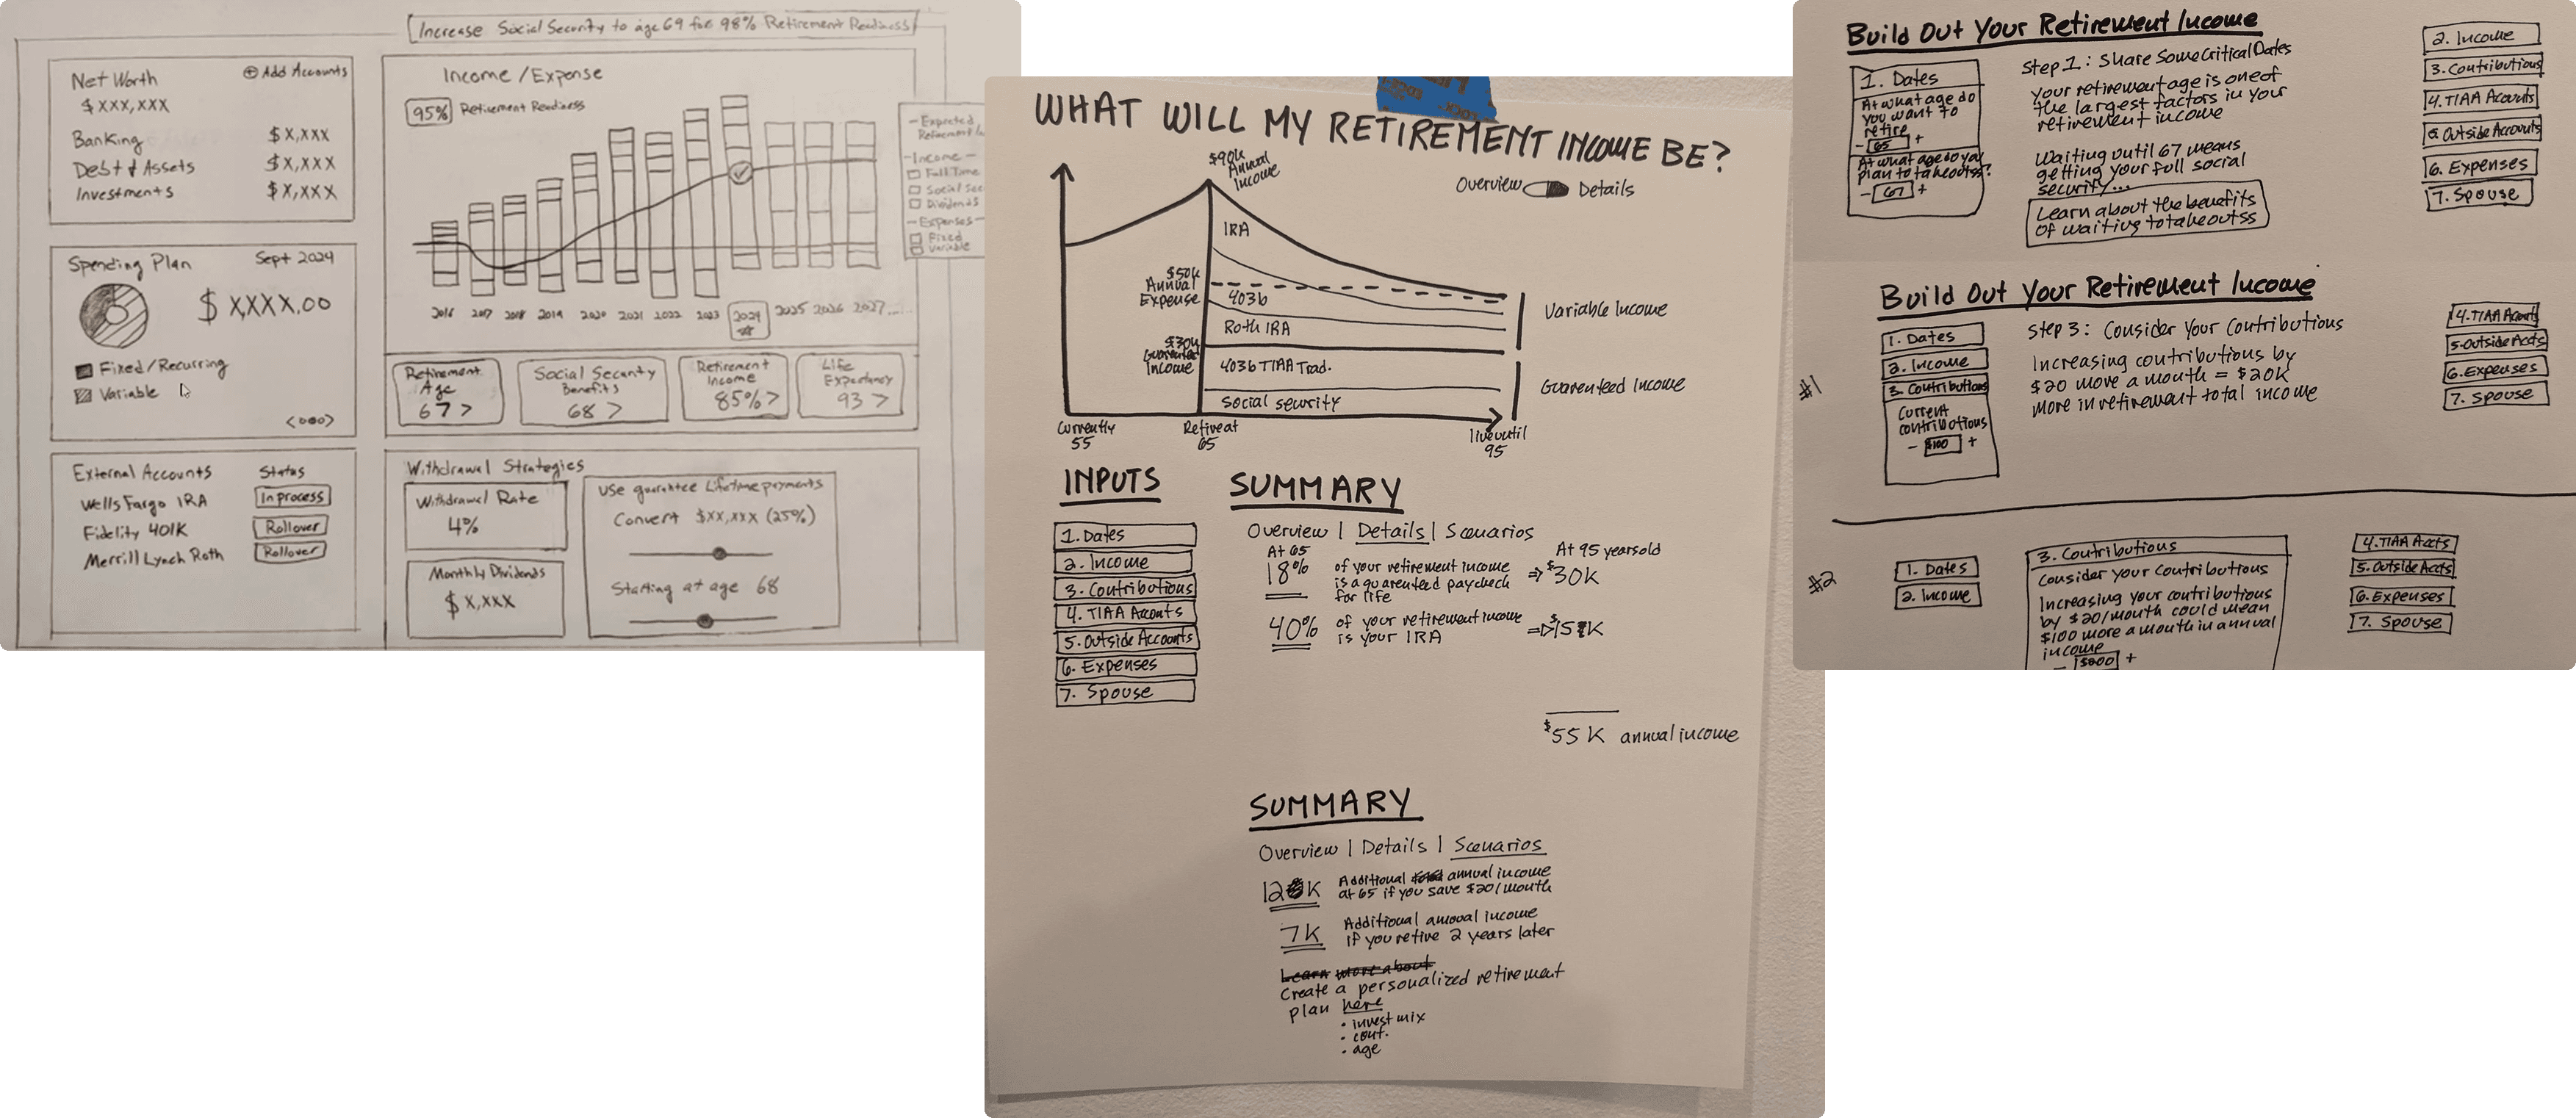 Increase Social Security to age 69 for 98% Retirement Readiness
Net Worth
⊕ Add Accounts
$ XXX,XXX
Banking $X,XXX
Debt & Assets $X,XXX
Investments $X,XXX
Spending Plan Sept 2024
$ XXXX.00
Fixed/Recurring
Variable
<ooo>
External Accounts Status
Wells Fargo IRA In process
Fidelity 401K Rollover
Merrill Lynch Roth Rollover
Income/Expense
95% Retirement Readiness
2016 2017 2018 2019 2020 2021 2022 2023 2024 2025 2026 2027....
- Expected
Retirement
- Income -
Full Time
Social Sec
Dividends
- Expenses -
Fixed
Variable
Retirement
Age
67 >
Social Security
Benefits
68 >
Retirement
Income
85% >
Life
Expectancy
93 >
Withdrawal Strategies
Withdrawal Rate
4%
Monthly Dividends
$ X,XXX
Use guarantee Lifetime payments
Convert $XX,XXX (25%)
Starting at age 68
WHAT WILL MY RETIREMENT INCOME BE?
Overview Details
$90k
Annual
Income
IRA
$50k
Annual
Expense
403b
Roth IRA
$30k
Guarenteed
Income
403b TIAA Trad.
Social security
Variable Income
Guarenteed Income
Currently
55
Retire at
65
live until
95
INPUTS
1. Dates
2. Income
3. Contributions
4. TIAA Accounts
5. Outside Accounts
6. Expenses
7. Spouse
SUMMARY
Overview | Details | Scenarios
At 65
At 95 years old
18% of your retirement income
is a guarenteed paycheck
for life
⇒ $30K
40% of your retirement income
is your IRA
$55K annual income
SUMMARY
Overview | Details | Scenarios
Additional annual income
at 65 if you save $20/month
7K Additional annual income
if you retire 2 years later
Learn more about
Create a personalized retirement
plan here
• invest mix
• cont.
• age
Build Out Your Retirement Income
1. Dates
At what age do
you want to
retire
- 65 +
At what age do you
plan to take out ss?
- 67 +
Step 1: Share Some Critical Dates
your retirement age is one of
the largest factors in your
retirement income
Waiting until 67 means
getting your full social
security...
Learn about the benefits
of waiting to take out ss
2. Income
3. Contributions
4. TIAA Accounts
Outside Accounts
6. Expenses
7. Spouse
Build Out Your Retirement Income
#1
1. Dates
2. Income
3. Contributions
Current
contributions
- $100 +
Step 3: Consider your Contributions
Increasing contributions by
$20 more a month = $20K
more in retirement total income
4. TIAA Accounts
5. Outside Accts
6. Expenses
7. Spouse
#2
1. Dates
2. Income
3. Contributions
Consider your Contributions
Increasing your contributions
by $20/month could mean
$100 more a month in annual
income
4. TIAA Accts
5. Outside Accts
6. Expenses
7. Spouse